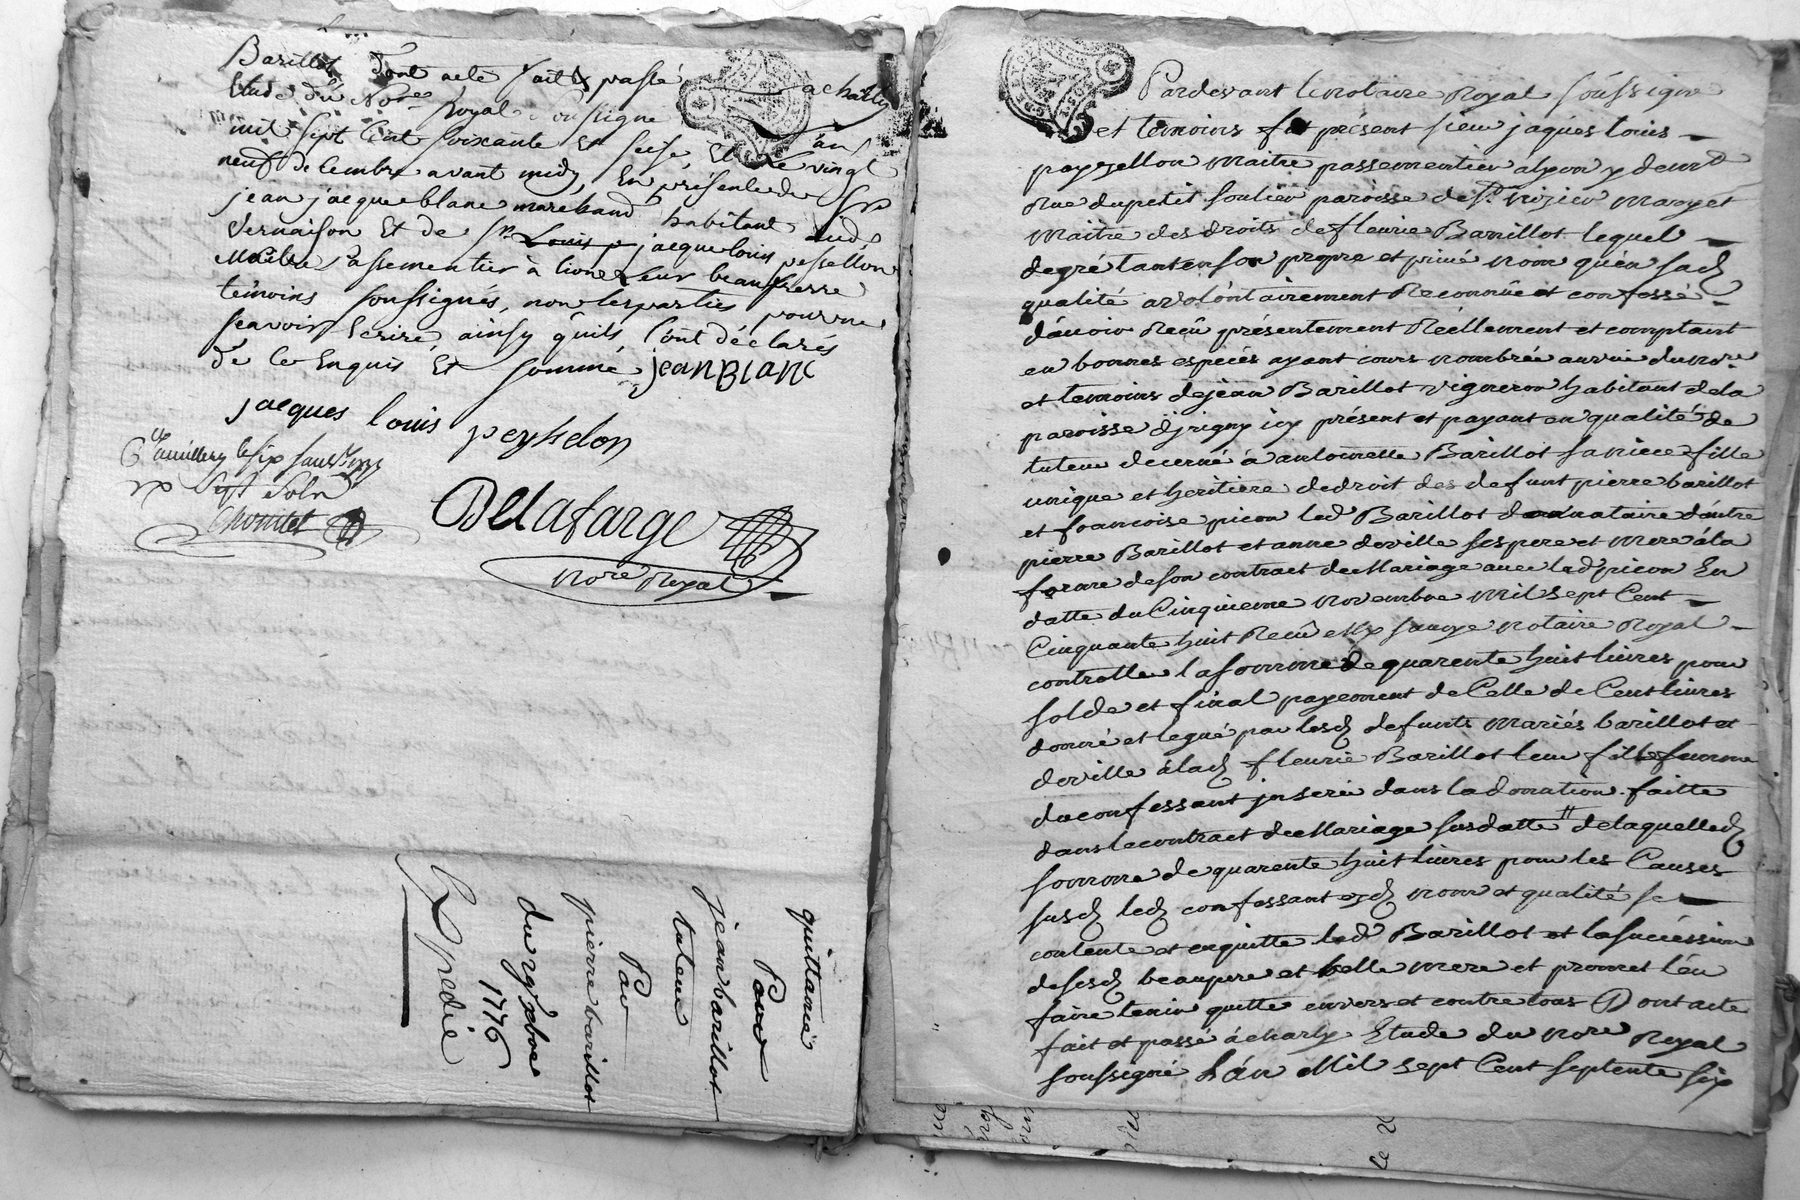 Barillot dont acte fait et passé a charly
Etude du No.re Royal soussigné l'an
mil sept cent soixante et seise, et le vingt
neuf decembre avant midy, en présence de Sr
jean jacque blanc marchand habitant aud.
Vernaison et de Sr. Louis jacque louis pessellon
Maître Passementier à lion Leur beaufrere
témoins soussignés, non les parties pour ne
scavoir Ecrire, ainsy qu'ils l'ont déclarés
de ce Enquis et sommé jean BLanc
jacques louis peyselon
sept sols
Delafarge
No.re Royal
quittance
Pour
jean barillot
tuteur
Par
pierre barillot
du 29e xbre
1776
Expedié
Pardevant le notaire Royal soussigné
et temoins fut présent sieur jaques louis
payzellon maitre passementier a lyon y demt
Rue du petit soulier paroisse de St. nizier mary et
maitre des droits de fleurie Barillot lequel
de gré tant en son propre et privé nom qu'en sad.
qualité a volontairement Reconnu et confessé
d'avoir Reçû présentement Réellement et comptant
en bonnes espéces ayant cours nombrée au vû du no.re
et temoins de jean Barillot vigneron habitant de la
paroisse d'jrigny icy présent et payant en qualité de
tuteur decerné à antoinette Barillot sa niece fille
unique et heritiere de droit des defunt pierre barillot
et francoise picon led. Barillot donnataire d'autre
pierre Barillot et anne deville ses pere et mere à la
forme de son contract de Mariage avec lad. picon En
datte du Cinquieme novembre mil sept Cent
Cinquante huit Reçû Me savoye notaire Royal
controllé la somme de quarente huit livres pour
solde et final payement de Celle de Cent livres
donné et legué par lesd. defunts mariés barillot et
deville à lad. fleurie Barillot leur fille femme
du confessant jnserée dans la donation faitte
dans le contract de Mariage susdatté de laquelle d.
somme de quarente huit livres pour les Causes
susd. led. confessant esd. nom et qualité se
contente et enquitte led. Barillot et la succéssion
de sesd. beaupere et belle mere et promet l'en
faire tenir quitte envers et contre tous Dont acte
fait et passé à charly Etude du no.re Royal
soussigné L'án Mil sept Cent septente six